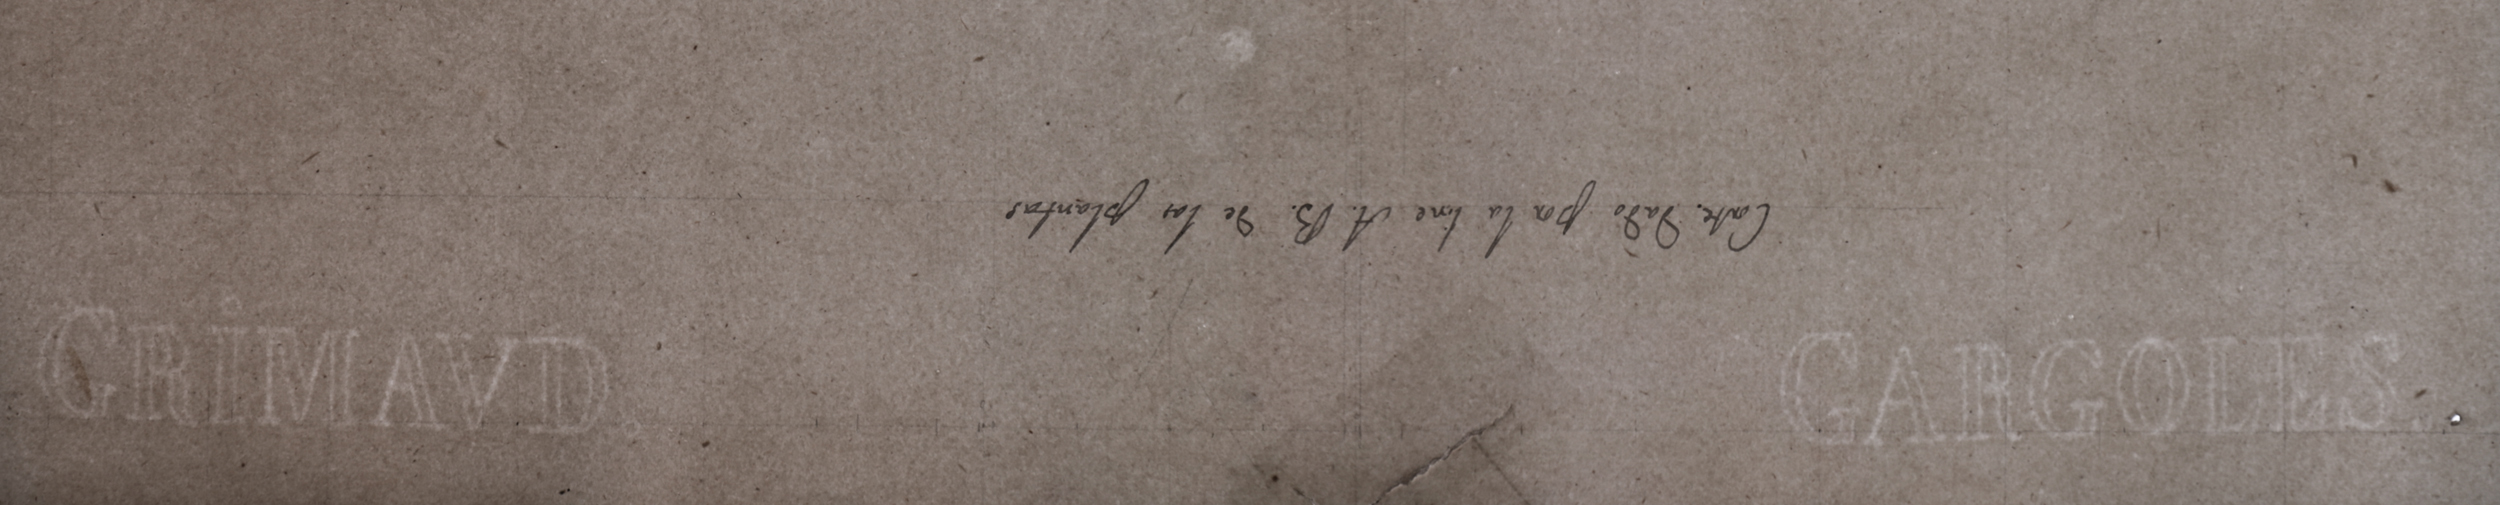 Corte. Dado por la line A. B. de las plantas
GRIMAVD.
GARGOLES.